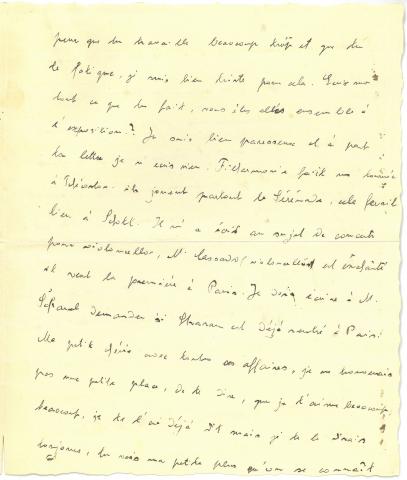 peur que tu travailles beaucoup trop et que tu
te fatigue, je suis bien triste pour cela. Ecris moi
tout ce que tu fait, vous êtes allés ensemble à
l'exposition? Je suis bien paresseuse et à part
ta lettre je n'ecris rien. Filarmonia fait une
à ils jouent partout la Sérénade, cela ferait
bien à Schott. Il m'a écrit au sujet de concert
pour violoncelle, M. Cassado (violoncelliste) est enchanté
il veut la première à Paris. Je dois écrire à M.
demander si Straram est déjà rentré à Paris.
Ma petit avec toutes ces affaires, je ne trouverais
pas une petite place, de te dire, que je t'aime beaucoup,
beaucoup, je te l'ai déjà dit mais je te le dirais
toujours, tu vois ma petite plus qu'on se connaît